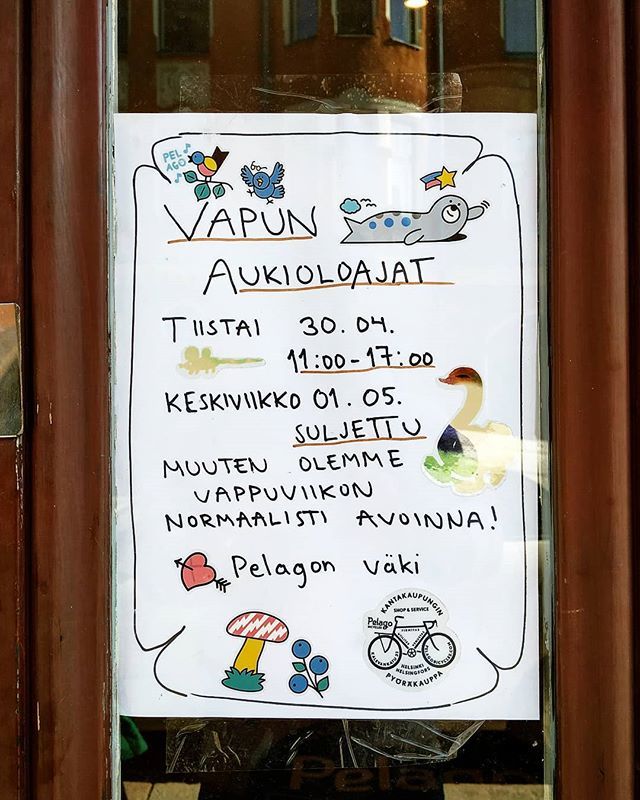 PEL
AGO
VAPUN
AUKIOLOAJAT
TIISTAI 30.04.
11:00-17:00
KESKIVIIKKO 01.05.
SULJETTU
MUUTEN OLEMME
VAPPUVIIKON
NORMAALISTI AVOINNA!
Pelagon väki
KANTAKAUPUNGIN
SHOP & SERVICE
Pelago
BICYCLES
HELSINKI
HELSINGFORS
PYÖRÄKAUPPA
Pelago